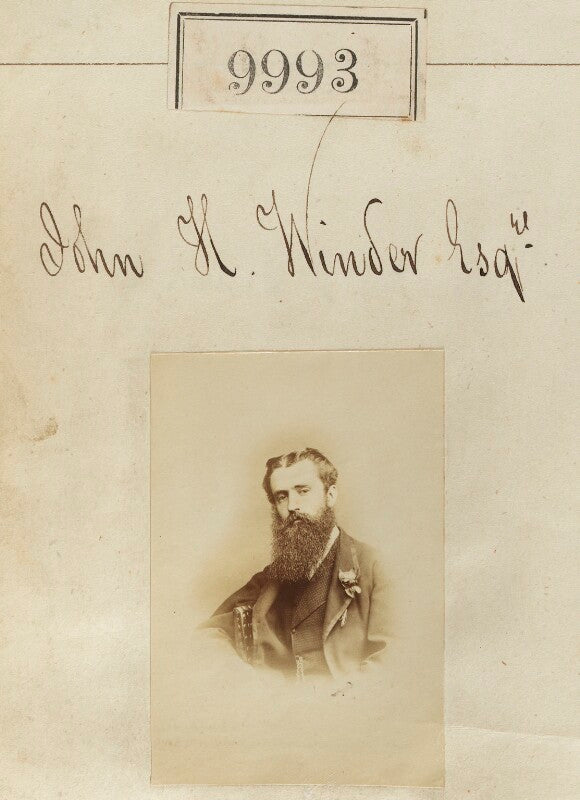 9993
John H. Winder Esqre